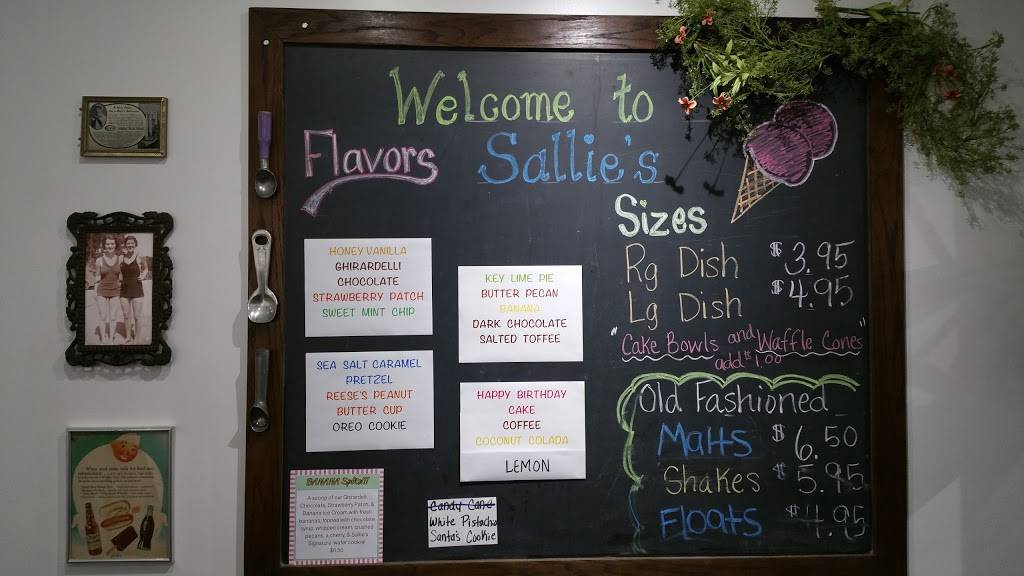 Welcome to
Sallie's
Flavors
HONEY VANILLA
GHIRARDELLI
CHOCOLATE
STRAWBERRY PATCH
SWEET MINT CHIP
SEA SALT CARAMEL
PRETZEL
REESE'S PEANUT
BUTTER CUP
OREO COOKIE
KEY LIME PIE
BUTTER PECAN
BANANA
DARK CHOCOLATE
SALTED TOFFEE
HAPPY BIRTHDAY
CAKE
COFFEE
COCONUT COLADA
LEMON
BANANA Split!!!
A scoop of our Ghirardelli
Chocolate, Strawberry Patch, &
Banana Ice Cream with fresh
bananas, topped with chocolate
syrup, whipped cream, crushed
pecans, a cherry, & Sallie's
Signature wafer cookie!
Candy Cane
White Pistachio
Santa's Cookie
Sizes
Rg Dish $3.95
Lg Dish $4.95
"Cake Bowls and Waffle Cones"
add $1.00
Old Fashioned
Malts $6.50
Shakes $5.95
Floats $4.95